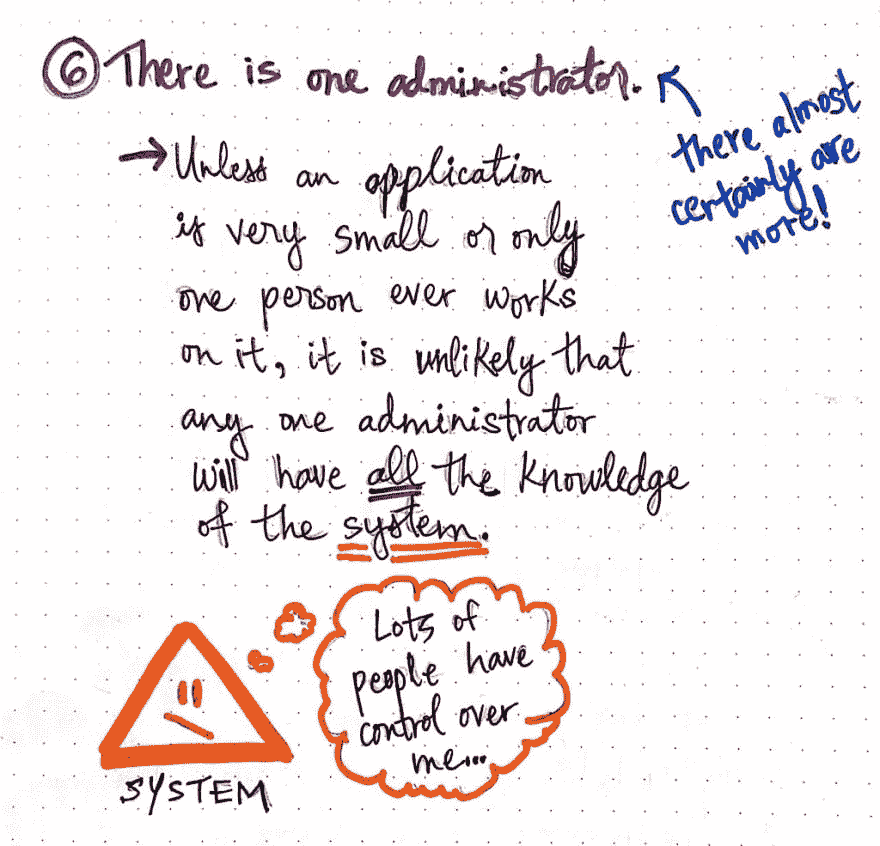 ⑥ There is one administrator.
there almost
certainly are
more!
→ Unless an application
is very small or only
one person ever works
on it, it is unlikely that
any one administrator
will have all the knowledge
of the system.
Lots of
people have
control over
me...
SYSTEM